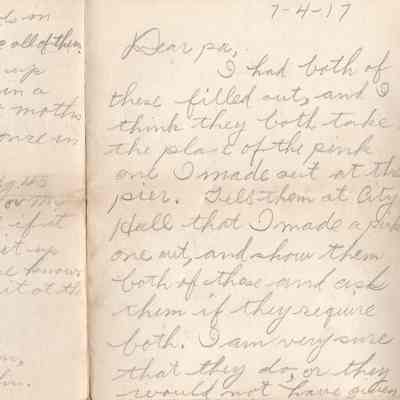 ds on
e all of them
up
in a
moths
once in
if it
it up
e knows
it at the
7-4-17
Dear pa,
I had both of
these filled out, and I
think they both take
the place of the pink
one I made out at the
pier. Tell them at City
Hall that I made a pink
one out, and show them
both of these and ask
them if they require
both. I am very sure
that they do, or they
would not have given